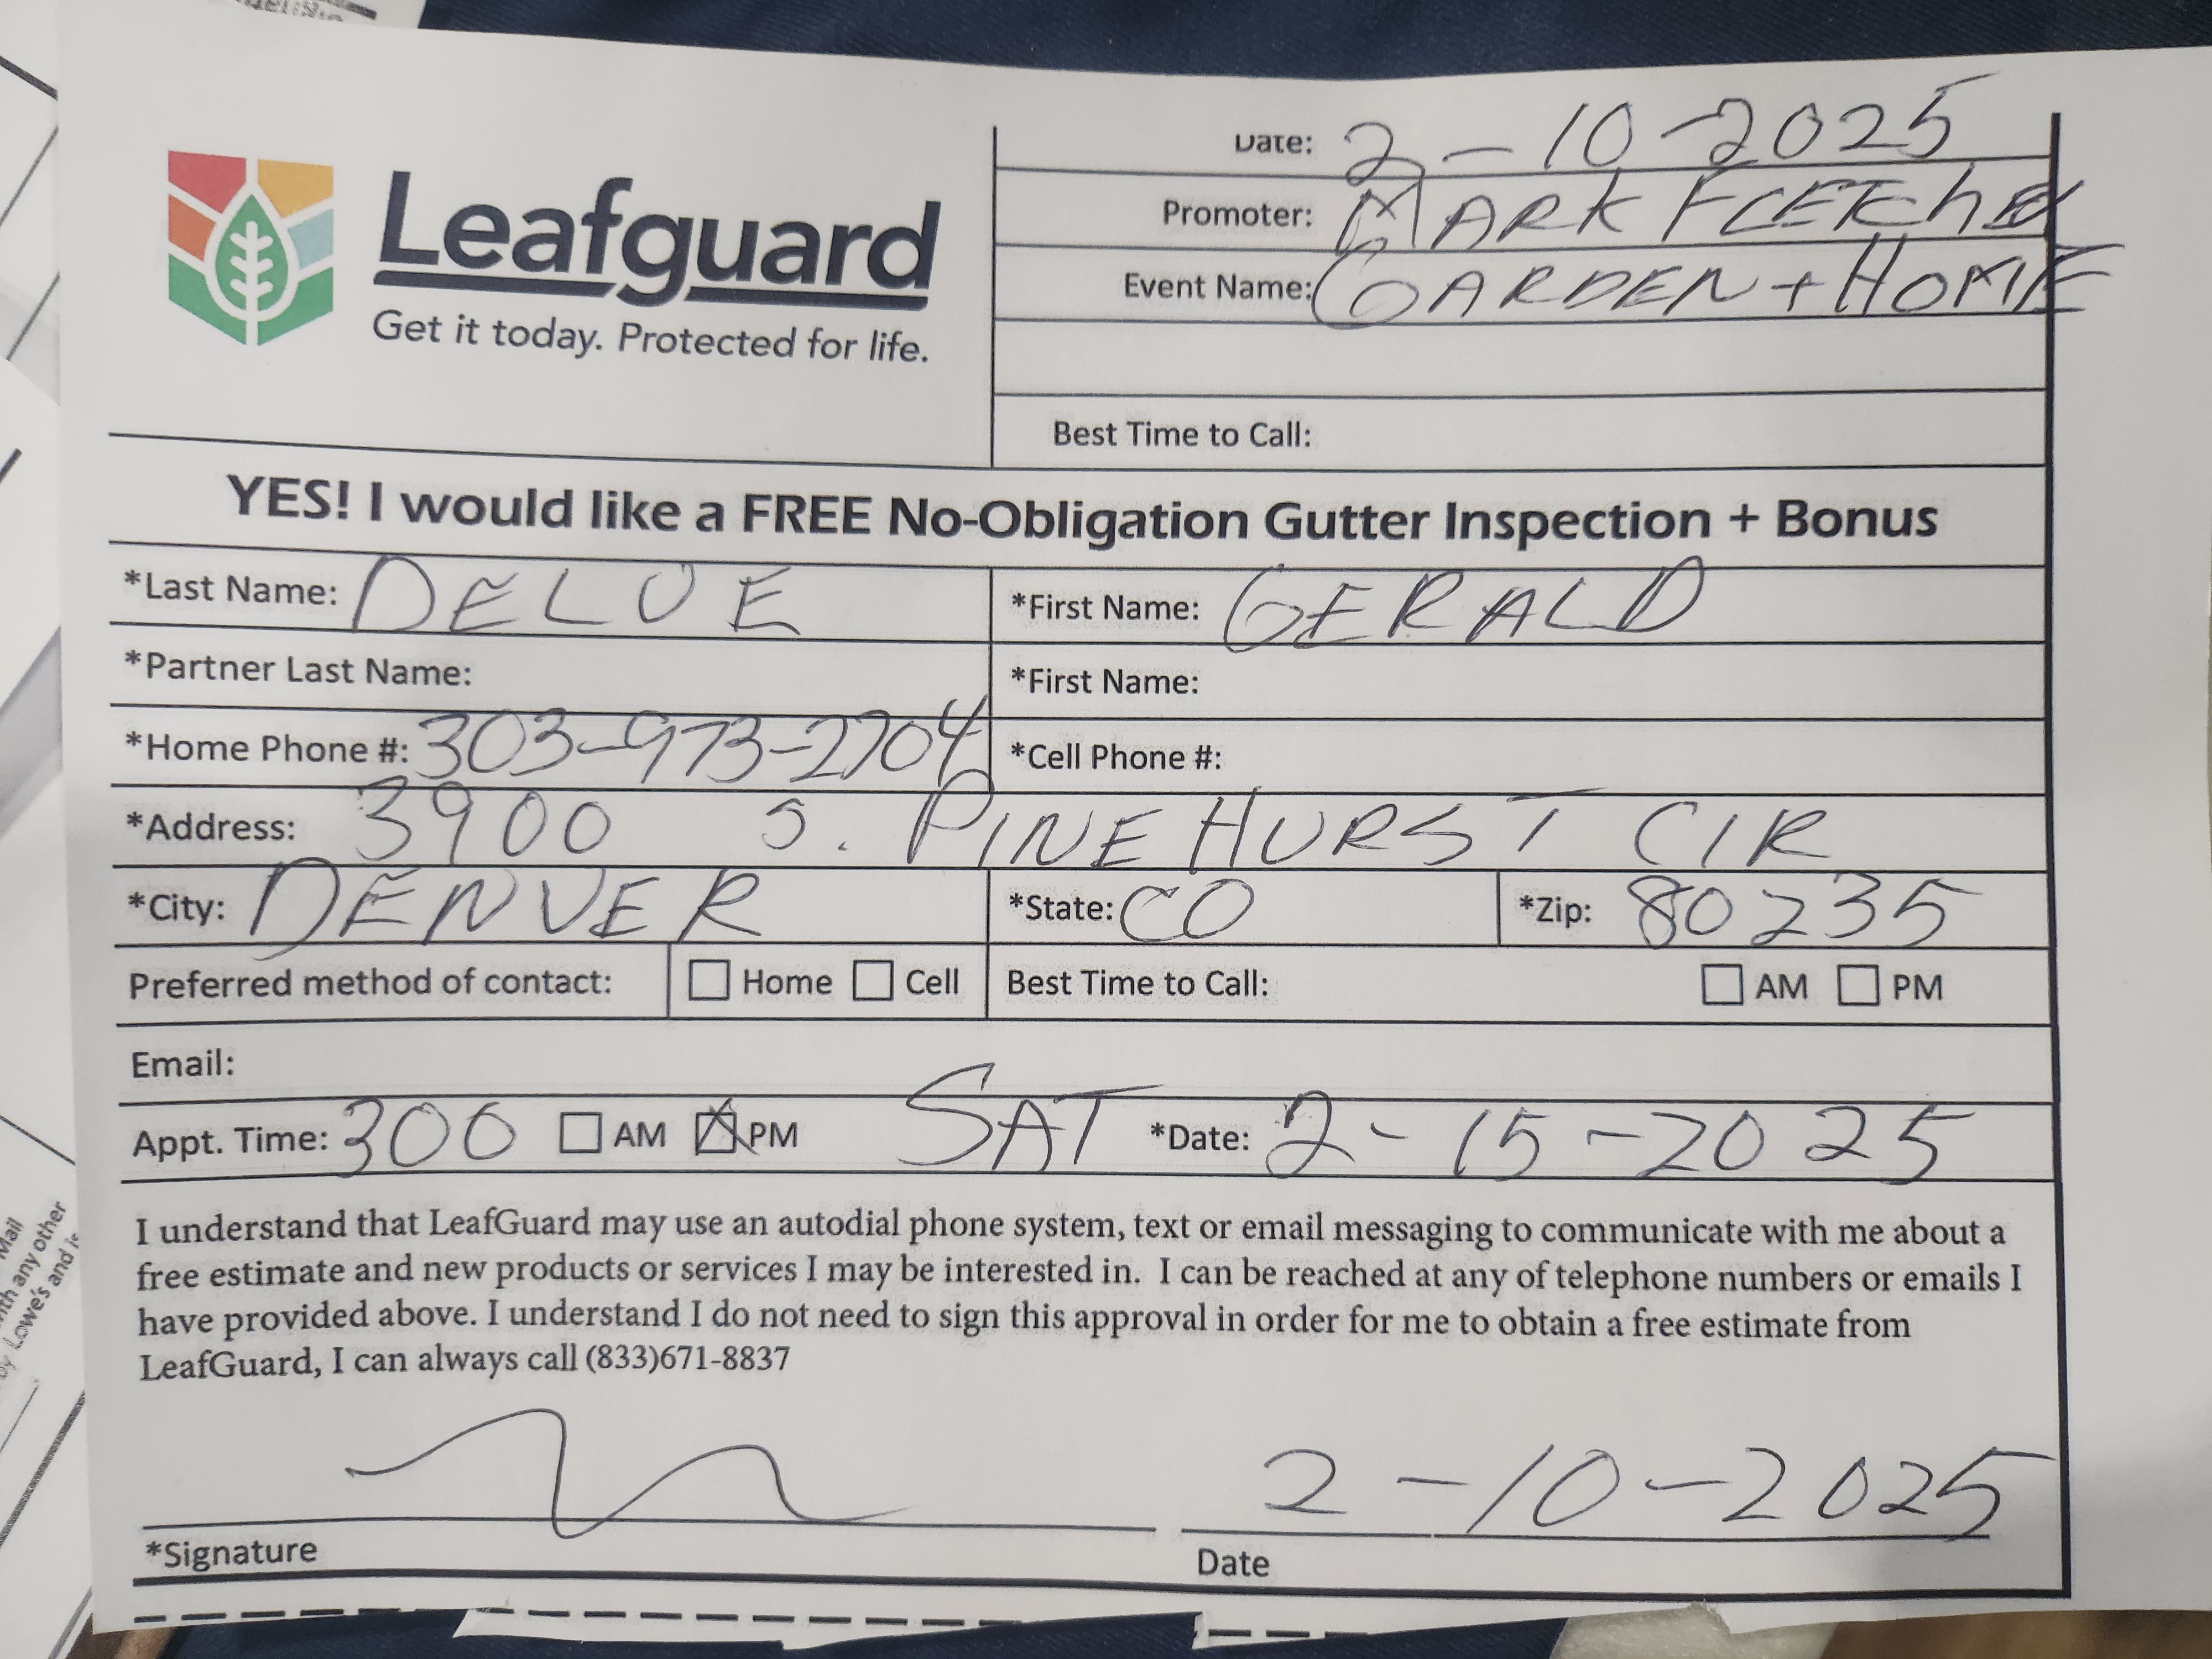 Mail
with any other
by Lowe's and is
Leafguard
Get it today. Protected for life.
Date: 2-10-2025
Promoter: MARK
Event Name: GARDEN + HOME
Best Time to Call:
YES! I would like a FREE No-Obligation Gutter Inspection + Bonus
*Last Name: DELOE *First Name: GERALD
*Partner Last Name: *First Name:
*Home Phone #: 303-973-2704 *Cell Phone #:
*Address: 3900 S. PINEHURST CIR
*City: DENVER *State: CO *Zip: 80235
Preferred method of contact: Home Cell Best Time to Call: AM PM
Email:
Appt. Time: 300 AM PM SAT *Date: 2-15-2025
I understand that LeafGuard may use an autodial phone system, text or email messaging to communicate with me about a
free estimate and new products or services I may be interested in. I can be reached at any of telephone numbers or emails I
have provided above. I understand I do not need to sign this approval in order for me to obtain a free estimate from
LeafGuard, I can always call (833)671-8837
2-10-2025
*Signature Date